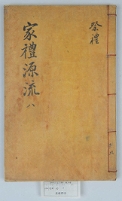 祭禮
家禮源流 八